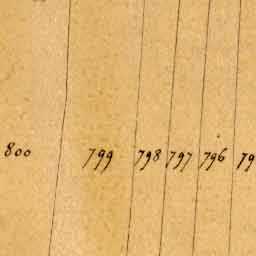 800 799 798 797 796